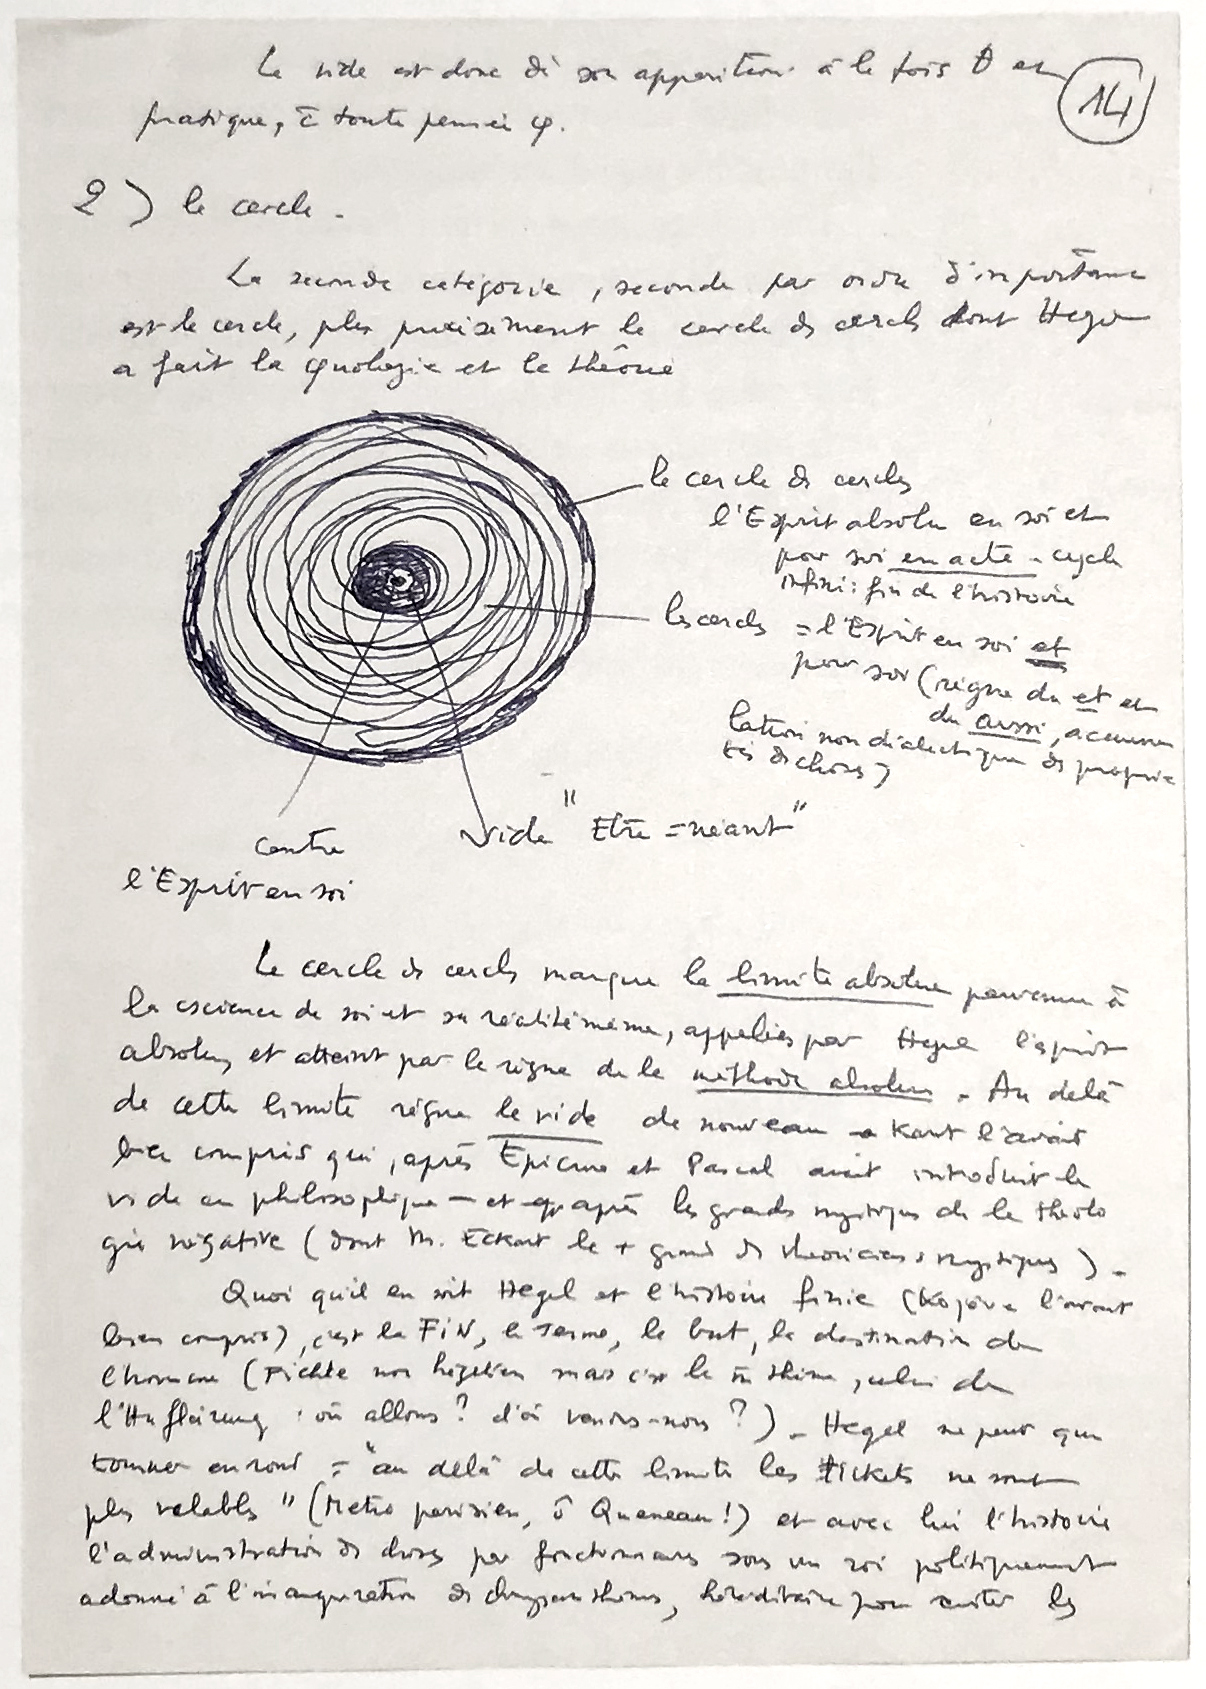 Le vide est donc dès son apparition à la fois θ et
14
pratique, à toute pensée φ.
2) le cercle.
La seconde catégorie, seconde par ordre d'importance
est le cercle, plus précisément le cercle des cercles dont Hegel
a fait la et la théorie
le cercle des cercles
l'Esprit absolu en soi et
pour soi en acte - cycle
infini : fin de l'histoire
les cercles = l'Esprit en soi et
pour soi (règne du et et
du aussi, accumu
lation non dialectique des proprié
tés des choses)
vide "Etre = néant"
centre
l'Esprit en soi
Le cercle des cercles marque la limite absolue parvenue à
la cscience de soi et sa réalité même, appelées par Hegel l'esprit
absolu, et atteint par le règne de la méthode absolue. Au delà
de cette limite règne le vide de nouveau Kant l'avait
bien compris qui, après Epicure et Pascal avait introduit le
vide en philosophique — et après les grands mystiques de la théolo
gie négative (dont M. Eckart le + grand des théoriciens mystiques).
Quoi qu'il en soit Hegel et l'histoire finie (Kojève l'avait
bien compris), c'est la FIN, le terme, le but, la destination de
l'homme (Fichte non hégélien mais c'est le m̄ thème, celui de
l'Aufklärung : où allons ? d'où venons-nous ?). Hegel ne peut que
tourner en rond = "au delà de cette limite les tickets ne sont
plus valables" (Métro parisien, ô Queneau !) et avec lui l'histoire
l'administration des choses par fonctionnaires sous un roi politiquement
adonné à l'inauguration des chrysanthèmes, héréditaire pour éviter les